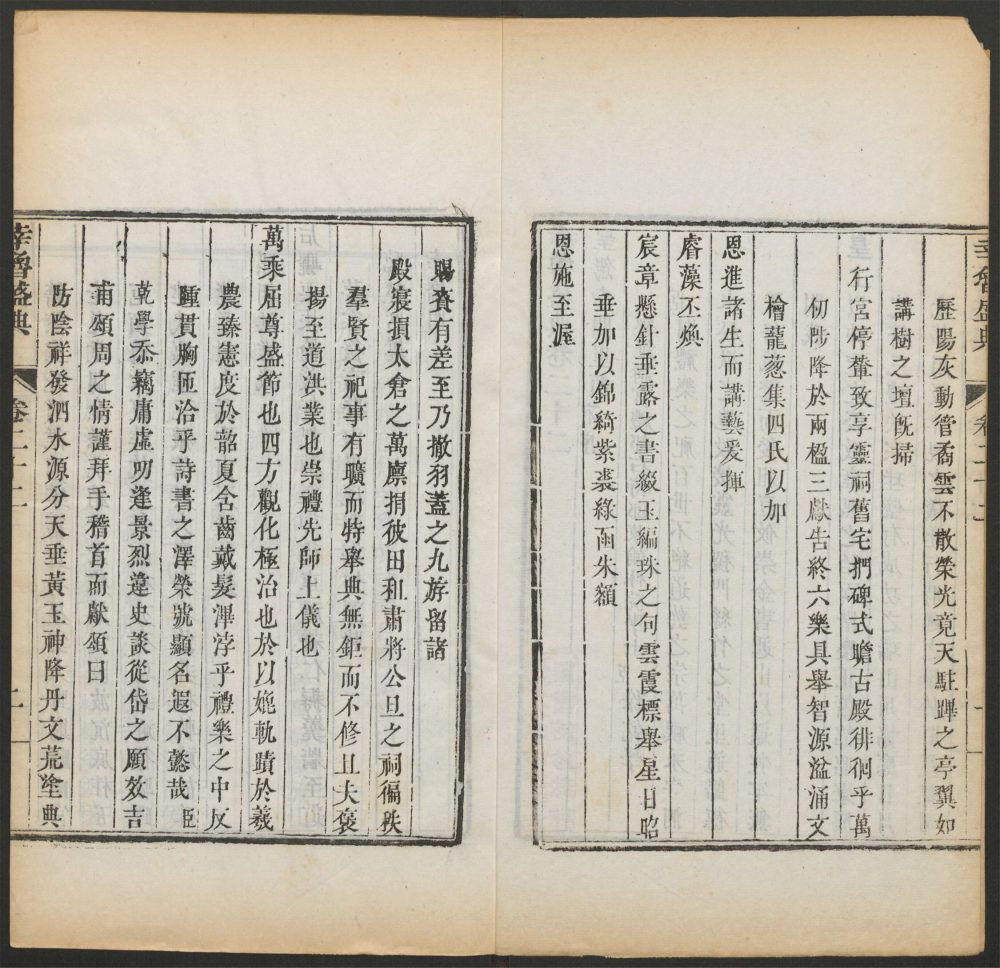 幸魯盛典
卷二十二
歷陽灰動管矞雲不散榮光竟天駐蹕之亭翼如
講樹之壇旣掃
行宮停輦致享靈祠舊宅捫碑式瞻古殿徘徊乎萬
仞陟降於兩楹三獻告終六樂具舉智源溢涌文
檜龍葱集四氏以加
恩進諸生而講藝爰揮
睿藻丕煥
宸章懸針垂露之書綴玉編珠之句雲霞標舉星日昭
垂加以錦綺紫裘綠函朱額
恩施至渥
賜賚有差至乃撤羽蓋之九斿留諸
殿寢損太倉之萬廩捐彼田和肅將公旦之祠徧秩
羣賢之祀事有曠而特舉典無鉅而不修且夫褒
揚至道洪業也崇禮先師上儀也
萬乘屈尊盛節也四方觀化極治也於以媲軌蹟於羲
農臻憲度於韶夏含齒戴髮渾浡乎禮樂之中反
踵貫胸匝洽乎詩書之澤榮號顯名遐不懿哉臣
乾學忝竊庸虛叨逢景烈蓬史談從岱之願效吉
甫頌周之情謹拜手稽首而獻頌曰
防陰祥發泗水源分天垂黃玉神降丹文荒塗典
幸魯盛典
卷二十二
二